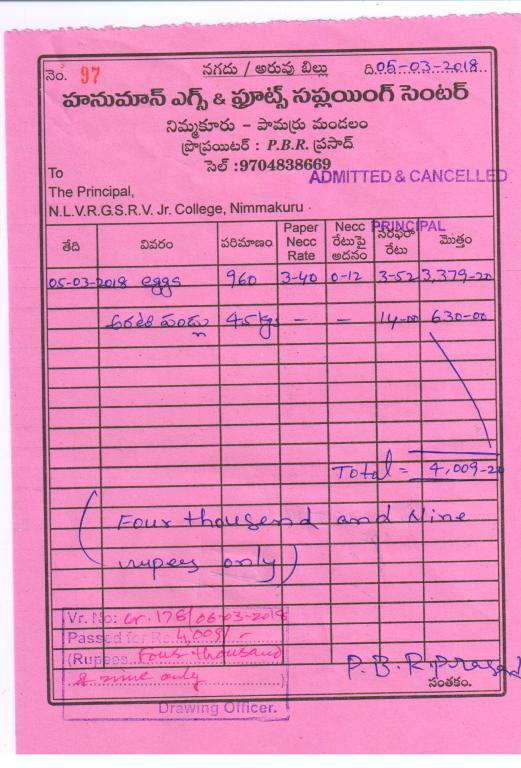 నెం. 97 నగదు / అరువు బిల్లు ది.05-03-2018
హనుమాన్ ఎగ్స్ & ఫ్రూట్స్ సప్లయింగ్ సెంటర్
నిమ్మకూరు – పామర్రు మండలం
ప్రొప్రయిటర్ : P.B.R. ప్రసాద్
సెల్ :9704838669
ADMITTED & CANCELLED
To
The Principal,
N.L.V.R.G.S.R.V. Jr. College, Nimmakuru
PRINCIPAL
తేది వివరం పరిమాణం Paper Necc Rate Necc రేటుపై అదనం సరఫరా రేటు మొత్తం
05-03-2018 eggs 960 3-40 0-12 3-52 3,379-20
అరటి పండ్లు 45kgs – – 14-00 630-00
Total = 4,009-20
(Four thousand and Nine
rupees only)
Vr. No: cr. 178/06-03-2018
Passed for Rs. 4,009/-
(Rupees four thousand
& nine only)
Drawing Officer.
P. B. R. Prasad
సంతకం.